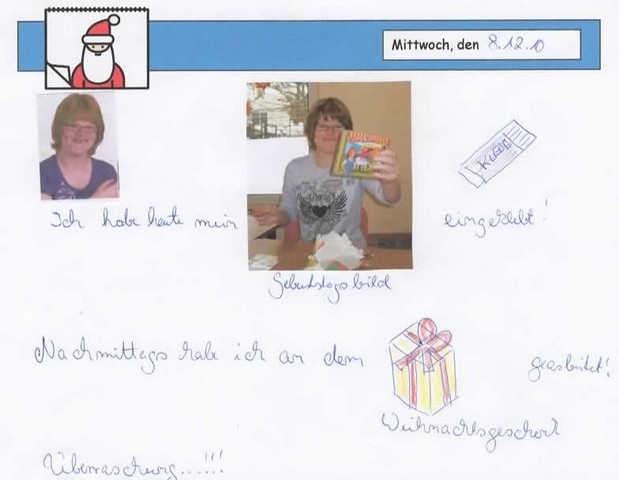 Mittwoch, den 8.12.10
KLEBER
Ich habe heute mein eingeklebt!
Geburtstagsbild
Nachmittags habe ich an dem gearbeitet!
Weihnachtsgeschenk
Überraschung.....!!!